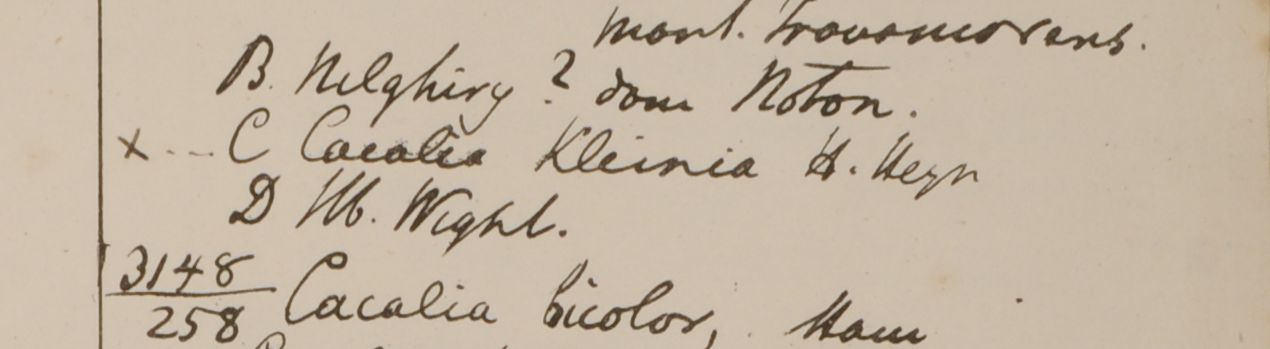 mont. Travancorens.
B. Nelghiry? dom Noton.
x ... C Cacalia Kleinia H. Heyn
D Hb. Wight.
3148
258 Cacalia bicolor, Ham